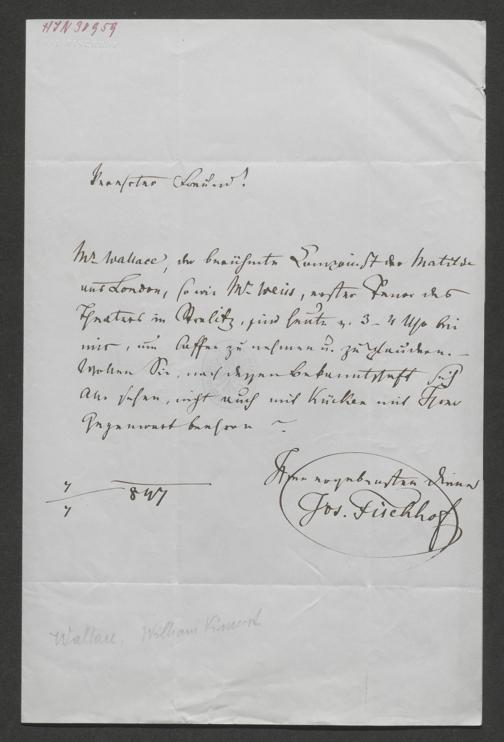 HIN 30959
Verehrter Freund!
Mr. Wallace, der berühmte Componist der Matilde
aus London, sowie Mr. Weiss, erster Tenor des
Theaters in Strelitz, sind heute v. 3–4 Uhr bei
mir, um Caffee zu nehmen u. zu plaudern. –
Wollen Sie, nach dessen Bekanntschaft sich
Alle sehnen, nicht auch mit Kücken mit Ihrer
Gegenwart beehren ~
Ihren ergebensten Diener
Jos. Fischhof
7/7 847
Wallace, William Vincent